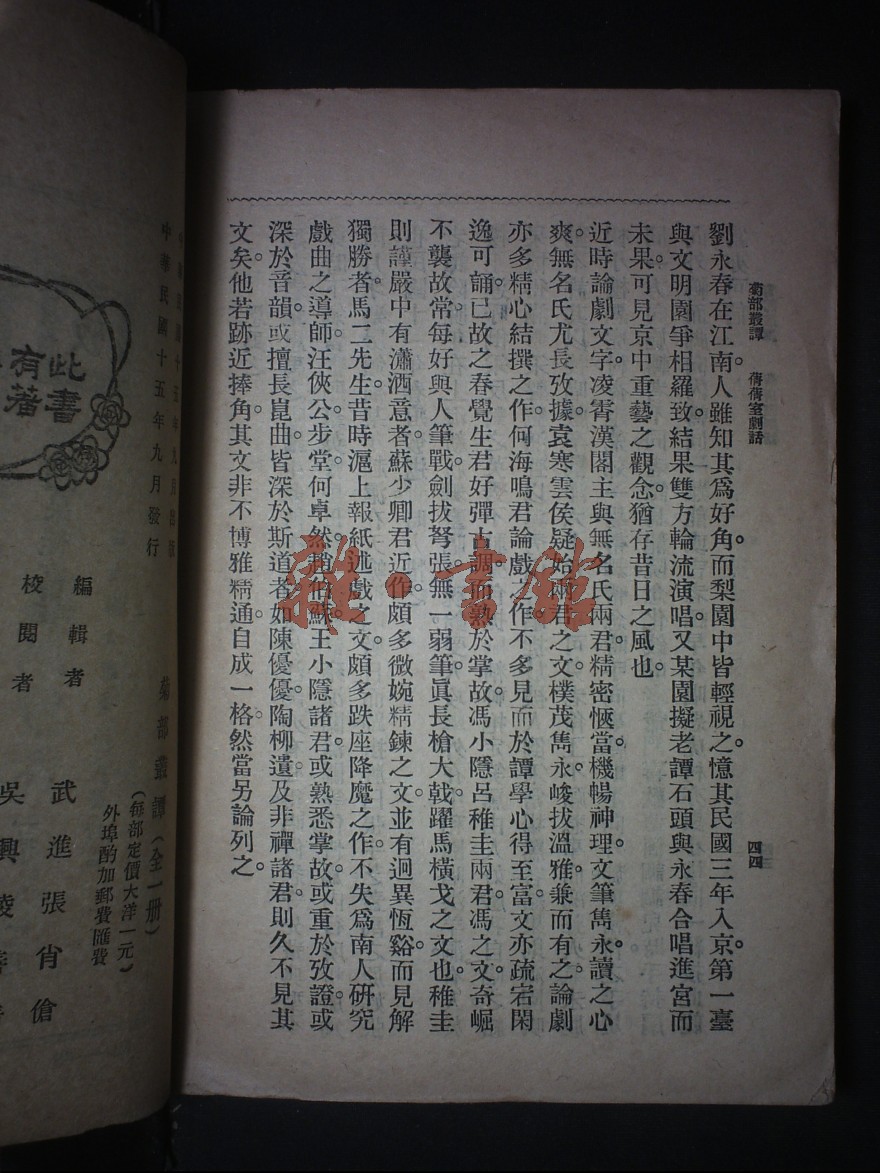 菊部叢譚 倩倩室劇話
四四
劉永春在江南人雖知其爲好角。而梨園中皆輕視之。憶其民國三年入京。第一臺
與文明園爭相羅致。結果雙方輪流演唱。又某園擬老譚石頭與永春合唱進宮而
未果。可見京中重藝之觀念。猶存昔日之風也。
近時論劇文字。凌霄漢閣主與無名氏兩君。精密愜當。機暢神理。文筆雋永。讀之心
爽。無名氏尤長攷據。袁寒雲侯疑始兩君之文。樸茂雋永。峻拔溫雅。兼而有之。論劇
亦多精心結撰之作。何海鳴君論戲之作。不多見。而於譚學心得至富。文亦疏宕閑
逸可誦。已故之春覺生君。好彈古調。而熟於掌故。馮小隱呂稚圭兩君。馮之文。奇崛
不襲故常。每好與人筆戰。劍拔弩張。無一弱筆。眞長槍大戟。躍馬橫戈之文也。稚圭
則謹嚴中有瀟洒意者。蘇少卿君近作。頗多微婉精鍊之文。並有迥異恆谿。而見解
獨勝者。馬二先生昔時滬上報紙述戲之文。頗多跌座降魔之作。不失爲南人硏究
戲曲之導師。汪俠公步堂何卓然趙伯蘇王小隱諸君。或熟悉掌故。或重於攷證。或
深於音韻。或擅長崑曲。皆深於斯道者。如陳優優陶柳遺及非禪諸君。則久不見其
文矣。他若跡近捧角。其文非不博雅精通。自成一格。然當另論列之。
此書
有著
中華民國十五年九月發行
編輯者
校閱者
武進張肖傖
吳興凌
菊部叢譚(全一册)
(每部定價大洋一元)
外埠酌加郵費匯費
雜·書館